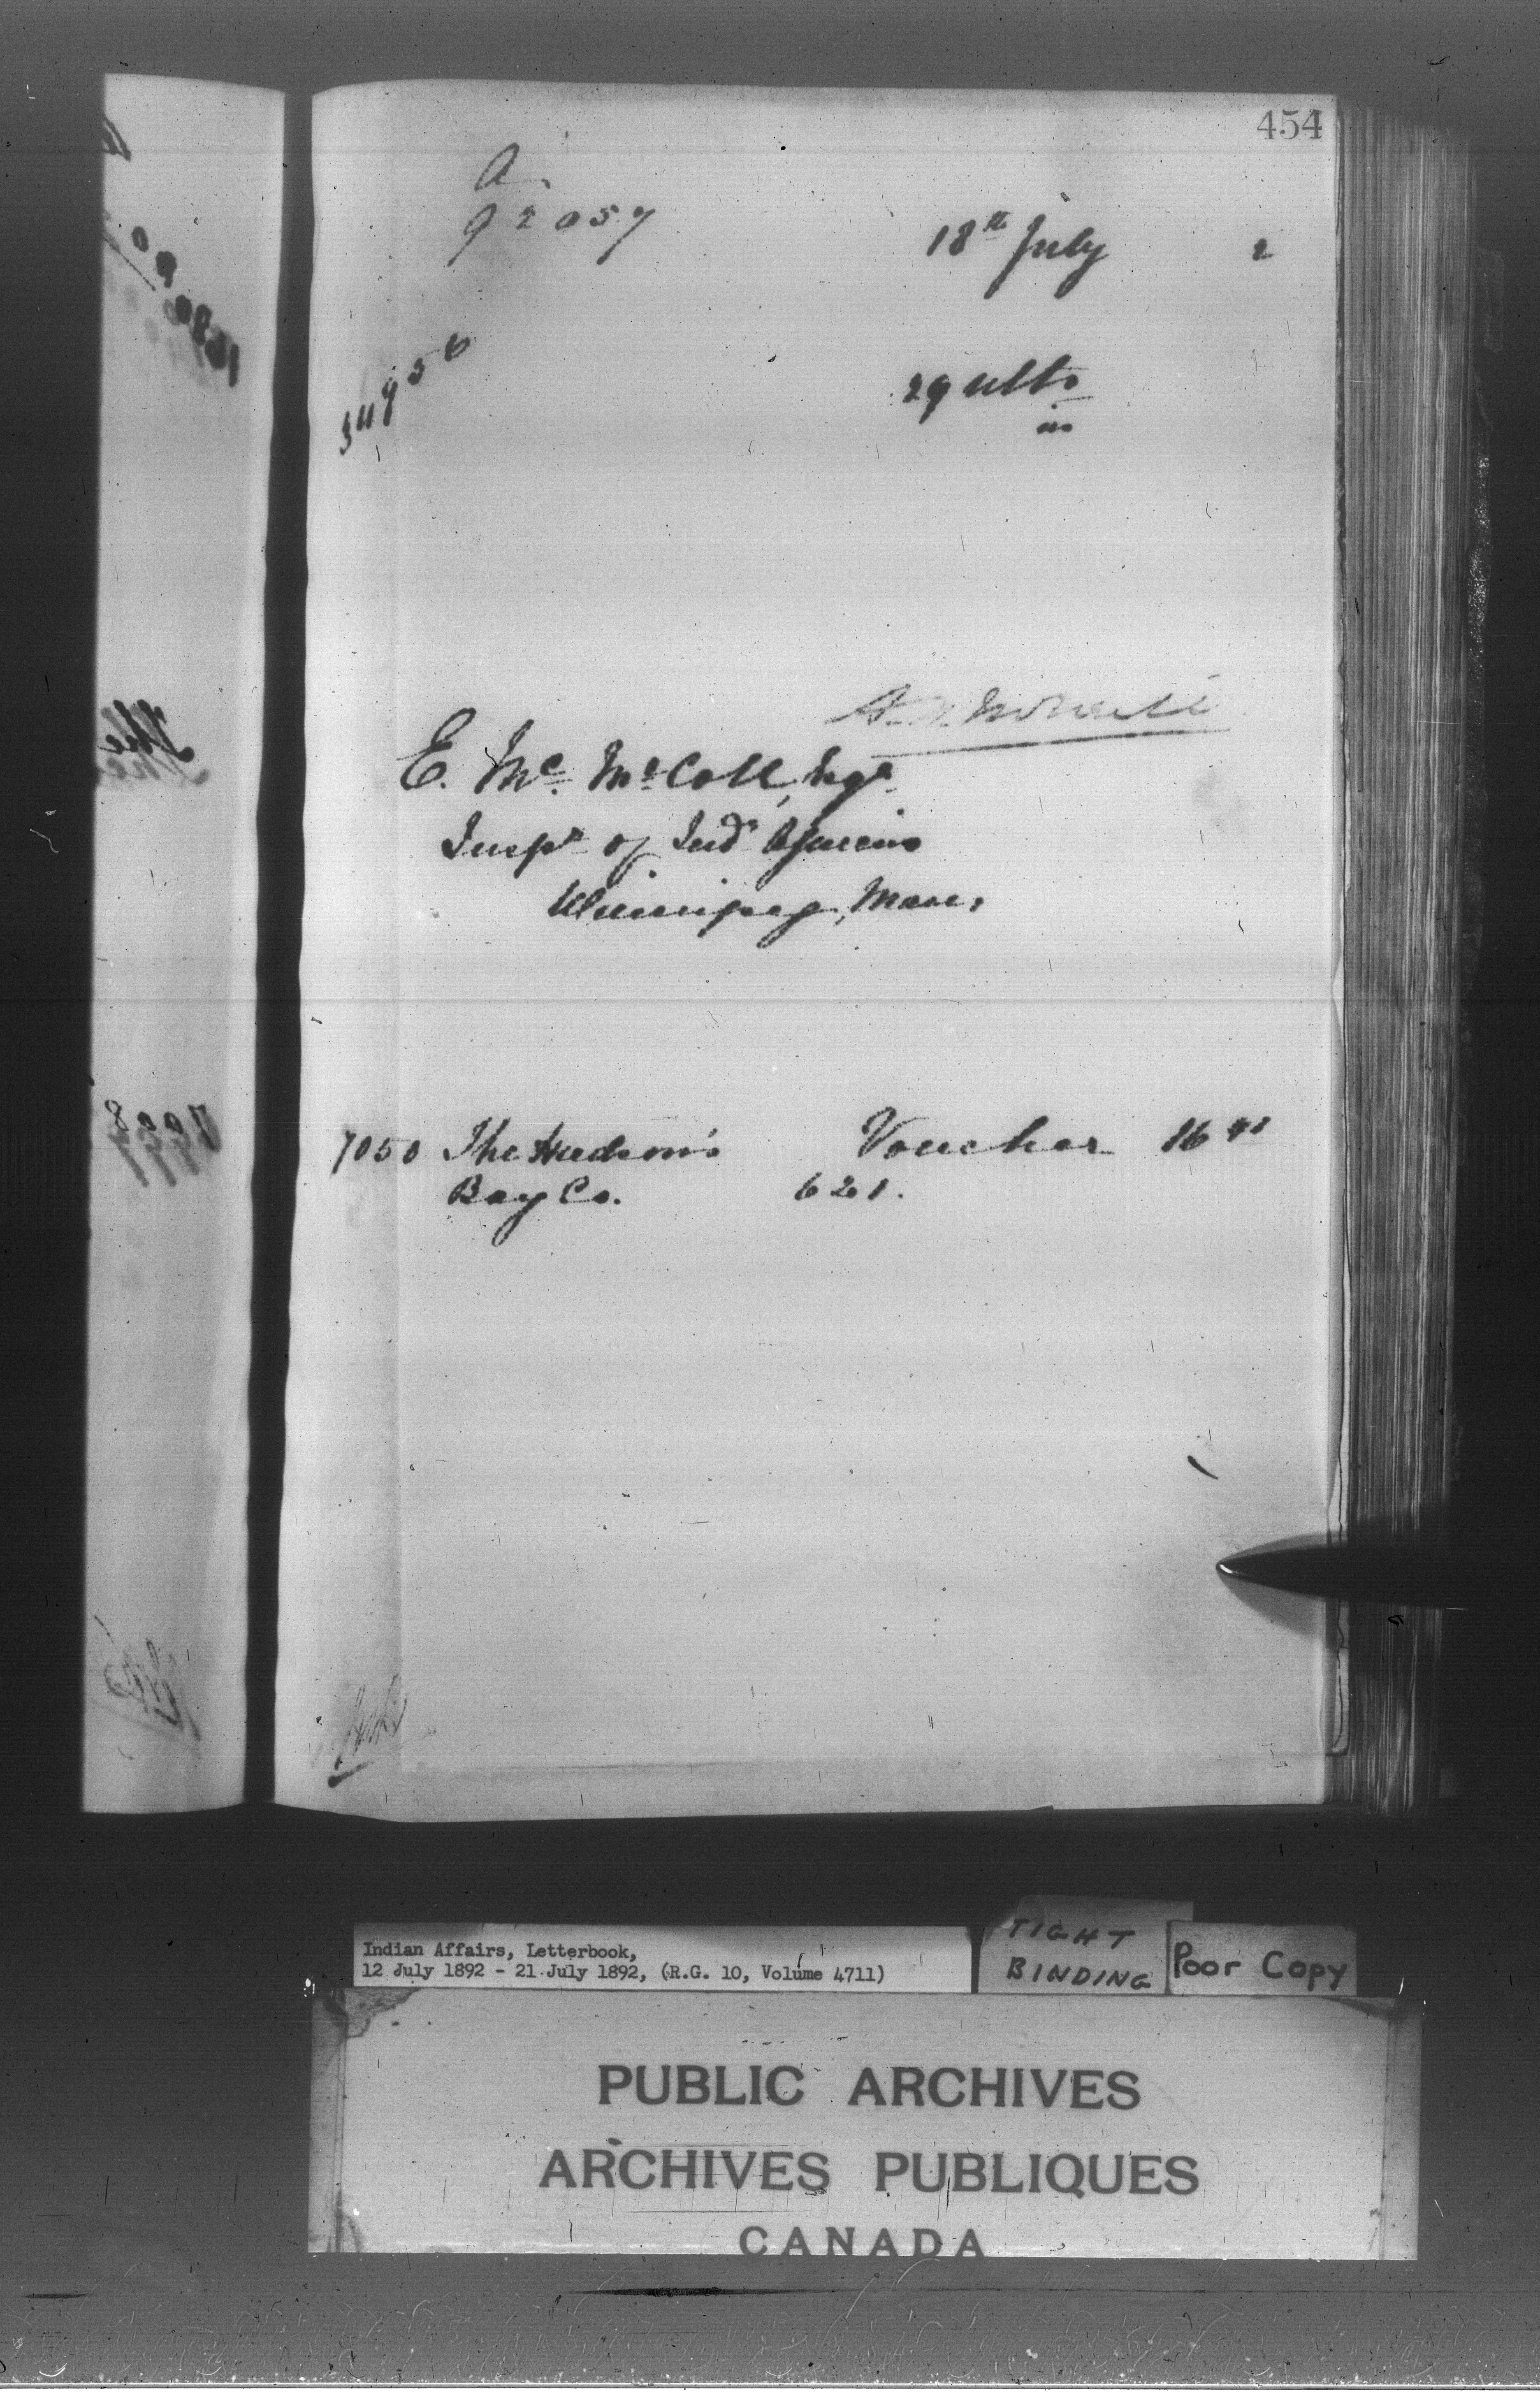 454
A.
92057
18th July 2
29 ulto
in
E. Mc. McColl, Esqr
Inspr of Indn Agencies
Winnipeg, Man,
7050 The Hudson's Voucher 16 41
Bay Co. 621.
Indian Affairs, Letterbook,
12 July 1892 - 21 July 1892, (R.G. 10, Volume 4711)
TIGHT
BINDING
Poor Copy
PUBLIC ARCHIVES
ARCHIVES PUBLIQUES
CANADA